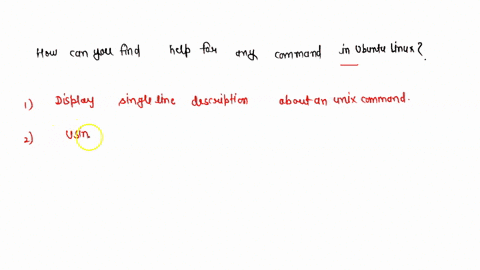 How can you find help for any command in Ubuntu Linux?.
1) Display single line description about an unix command.
2) Usin